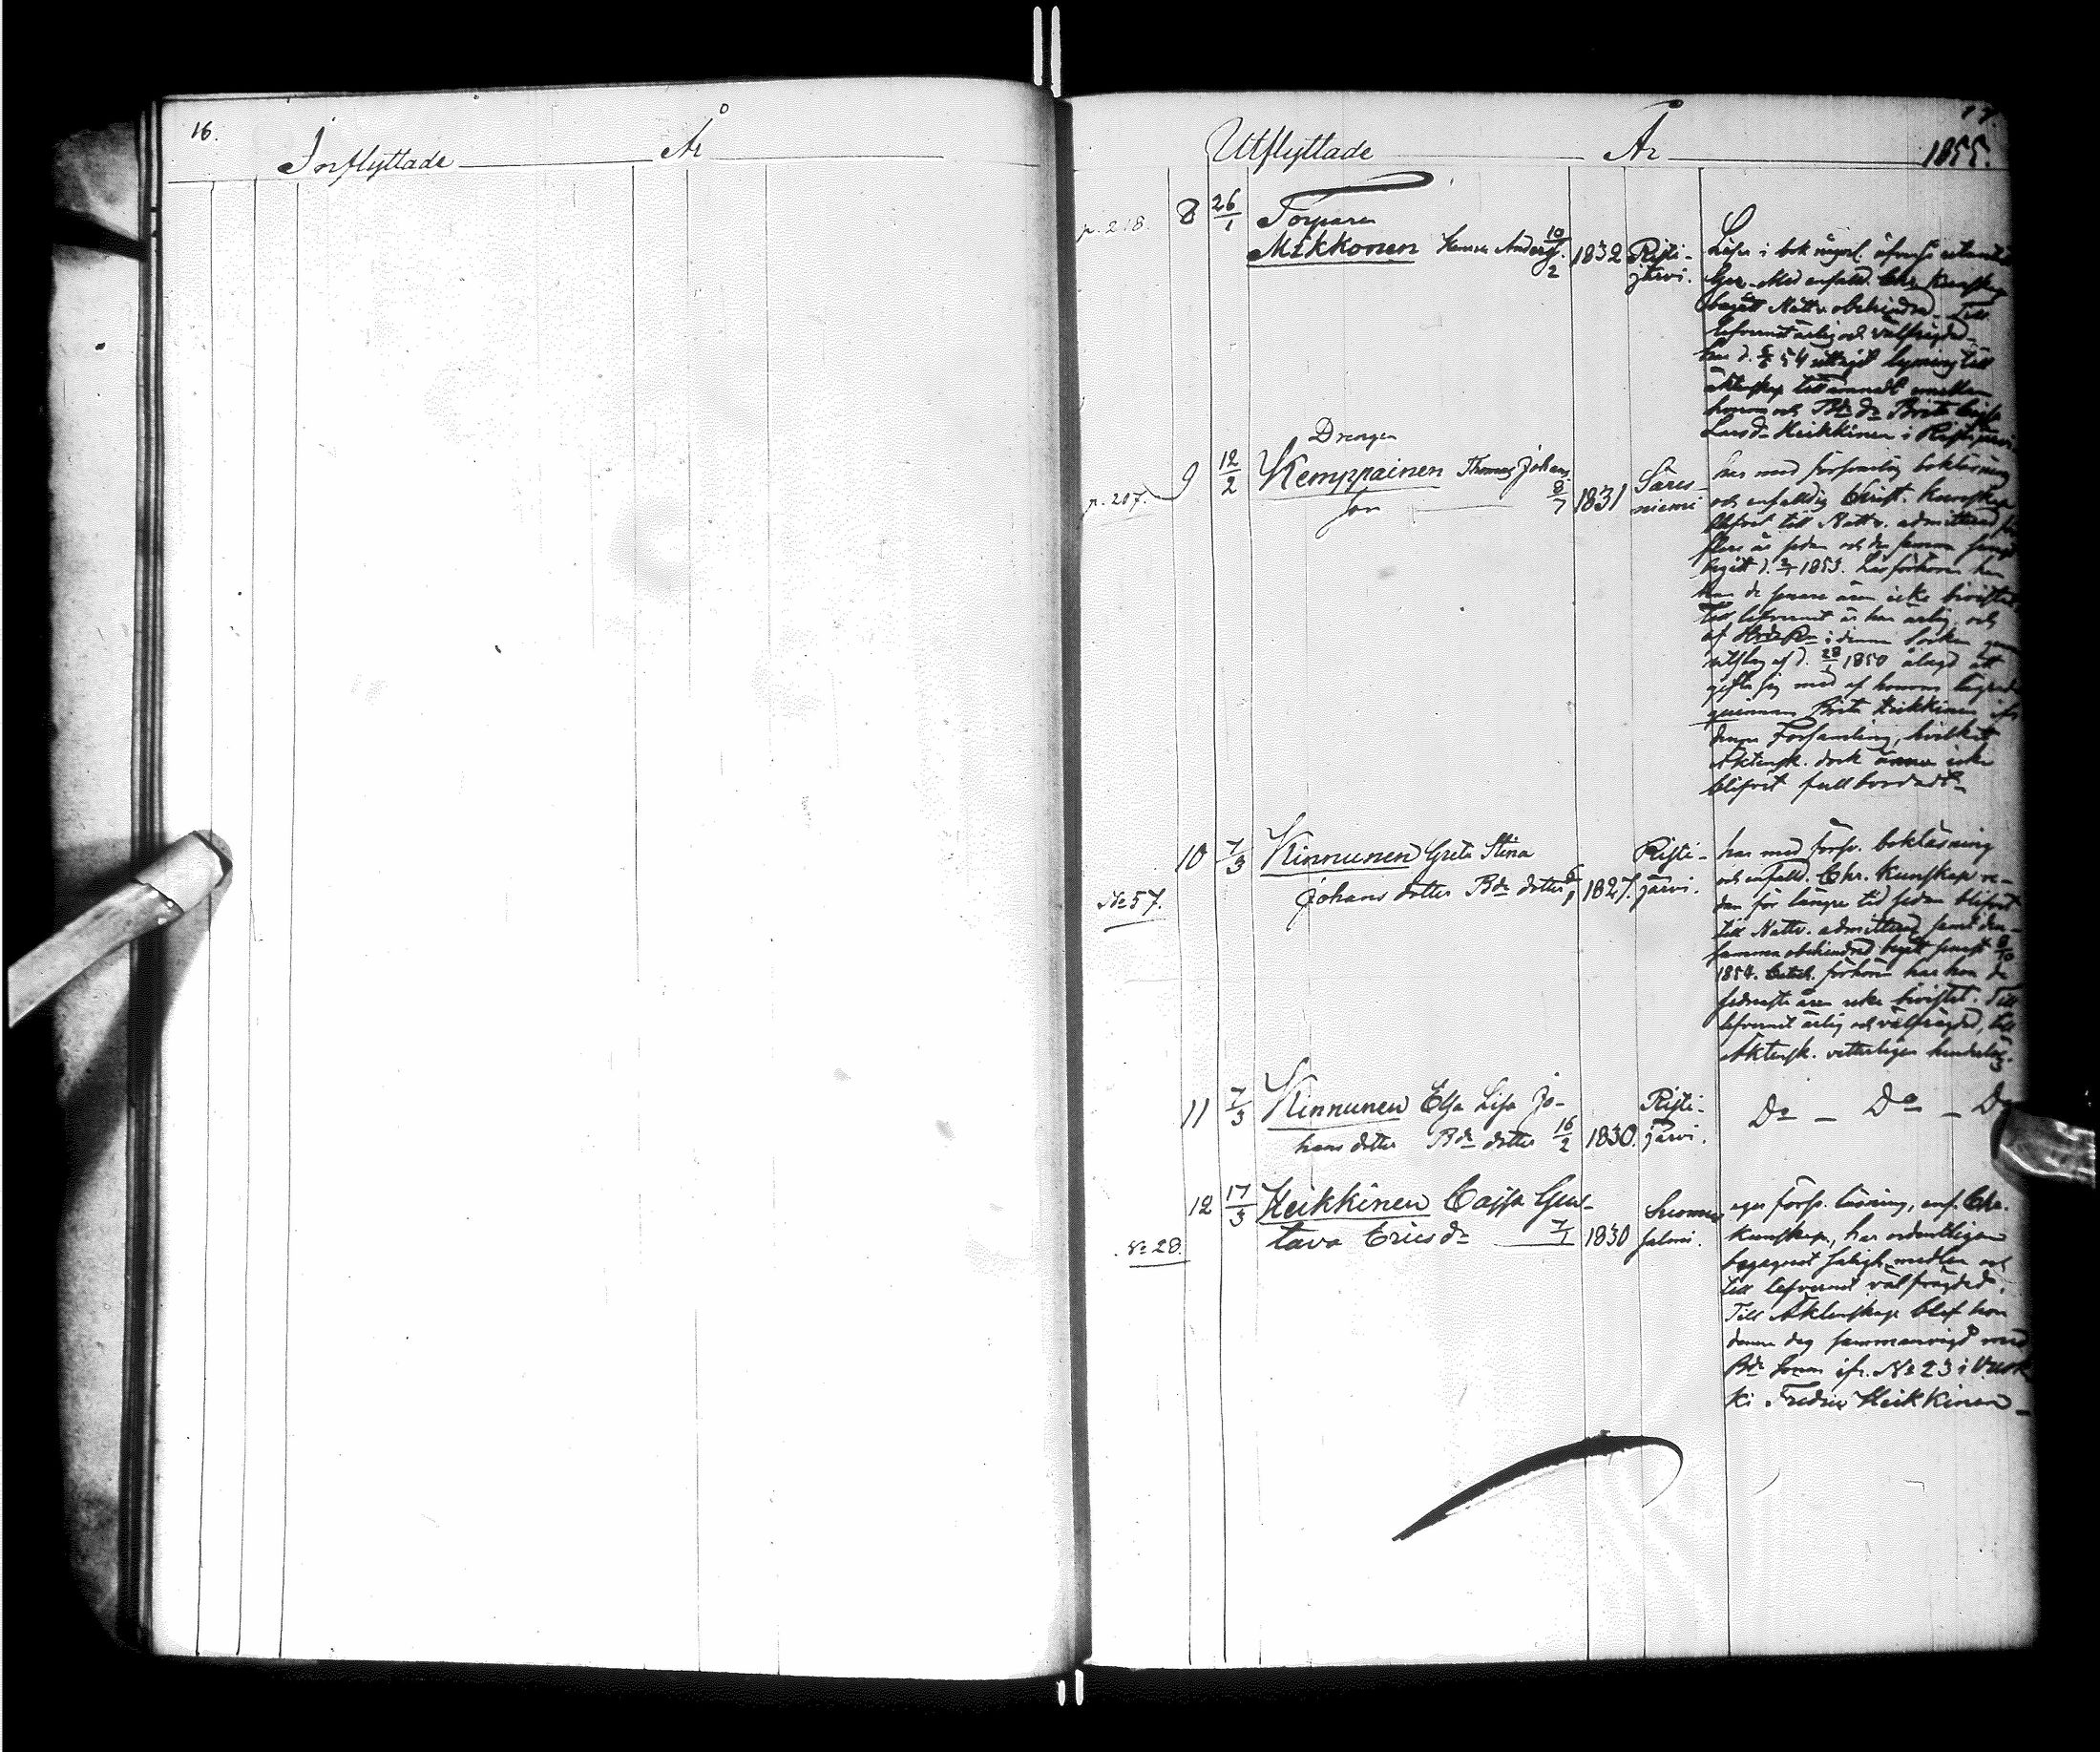 16.
Inflyttade År
Utflyttade År 1855.
p. 218. 8 26/1 Torparen
Mikkonen Anders 10/2 1832 Risti-
järvi.
Läser i bok
Med enfald. Chr. Kunskap
begått Nattv. obehindrad. Till
lefvernet ärlig och välfrägdad.
har d. 54 lysning till
äktenskap till emellan
honom och Bde dr Brita
Larsdr Heikkinen i Ristijärvi
Drengen
p. 207. 9 12/2 Kemppainen Thomas Johans
son 8/7 1831 Säres-
niemi
har med försvarlig bokläsning
och enfaldig Christ. Kunskap
blifvit till Nattv. admitterad för
flere år sedan och den samma senast
begått d. 1853. Läsförhören har
han de senare åren icke bivistat.
Till lefvernet är han ärlig, och
af i denna Socken genom
utslag af d. 28/1 1850 ålagd att
gifta sig med af honom lägrade
qvinnan Brita Heikkinen ifr
denna Församling, hvilket
Äktensk. dock ännu icke
blifvit fullbordadt.
10 7/3 Kinnunen Greta Stina
No 57. Johans dotter Bde dotter 1827. Risti-
järvi.
har med försv. bokläsning
och enfald. Chr. Kunskap re-
dan för längre tid sedan blifvit
till Nattv. admitterad samt den-
samma obehindrad begått senast 8/10
1854. Catech. förhören har hon de
sednaste åren icke bivistat. Till
lefvernet ärlig och välfrägdad, till
Äktensk. vetterligen hinderlös.
11 7/3 Kinnunen Elsa Lisa Jo-
hans dotter Bde dotter 16/2 1830. Risti-
järvi.
Do - Do - Do
12 17/3 Heikkinen Cajsa Gus-
No 28. tava Ericsdr 7/1 1830 Suomus
salmi.
eger försv. läsning, enf. Chr.
Kunskap, har ordentligen
begagnat salighs. medlen och
till lefvernet välfrägdad.
Till Äktenskap blef hon
denna dag sammanvigd med
Bde Sonen ifr. No 23 i Vuok
ki Fredric Heikkinen